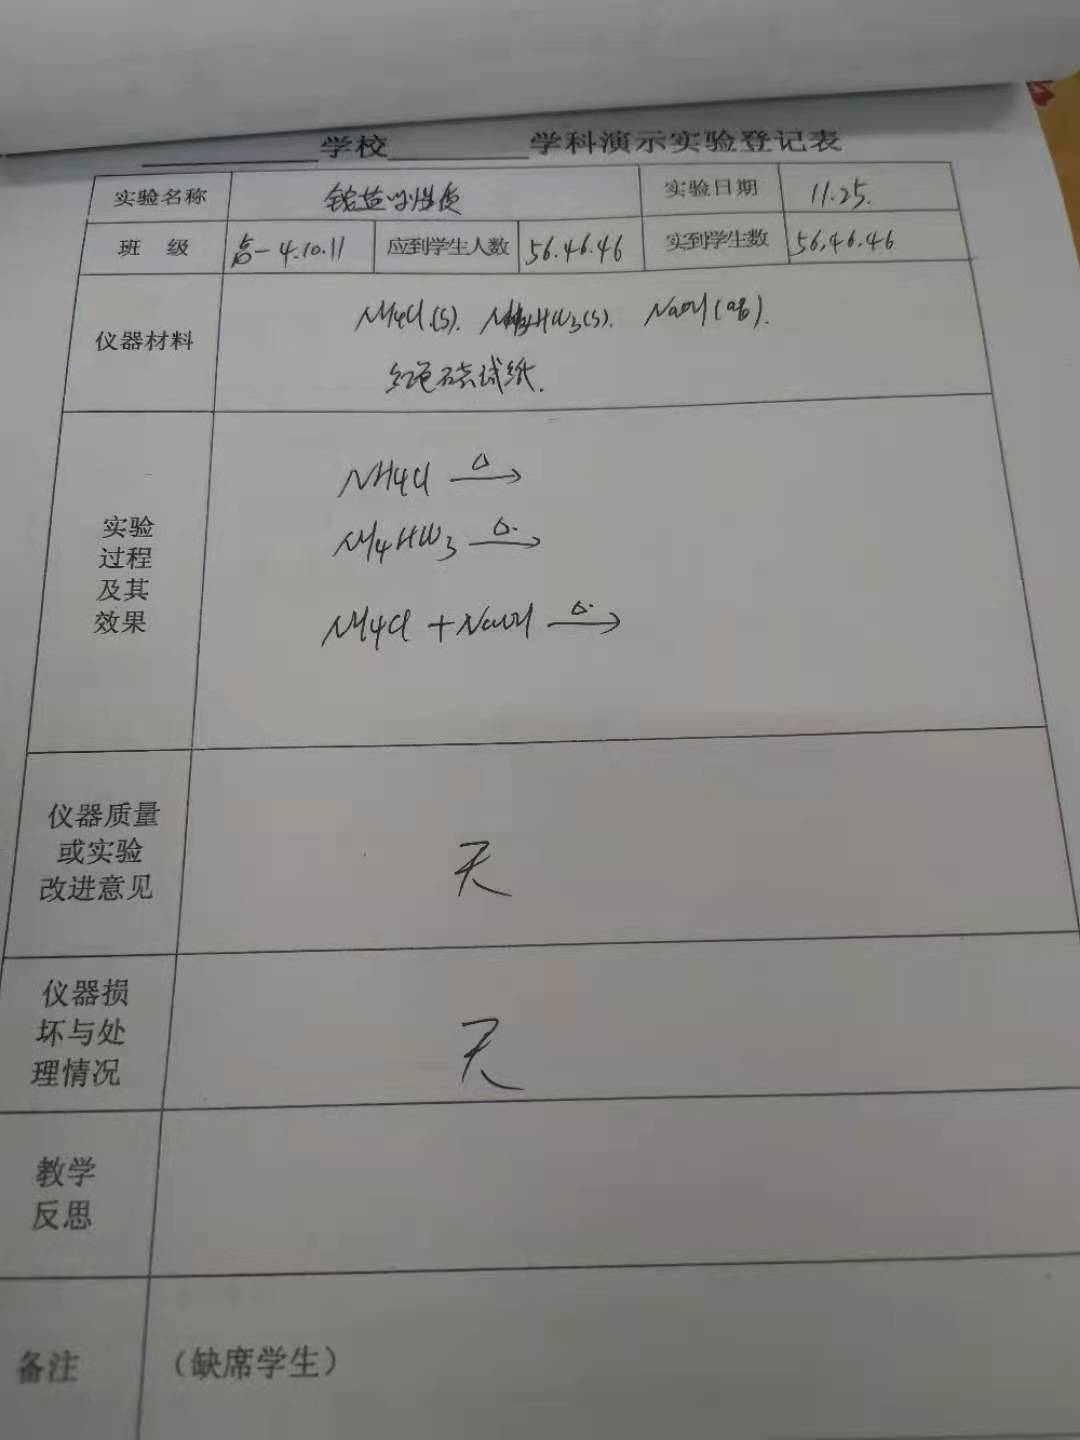 学校 学科演示实验登记表
实验名称 铵盐的性质 实验日期 11.25.
班 级 高一 4.10.11 应到学生人数 56.46.46 实到学生数 56,46.46
仪器材料 NH4Cl(s). NH4HCO3(s). NaOH(aq).
红色石蕊试纸.
实验
过程
及其
效果
NH4Cl △→
NH4HCO3 △→
NH4Cl + NaOH △→
仪器质量
或实验
改进意见
无
仪器损
坏与处
理情况
无
教学
反思
备注 (缺席学生)